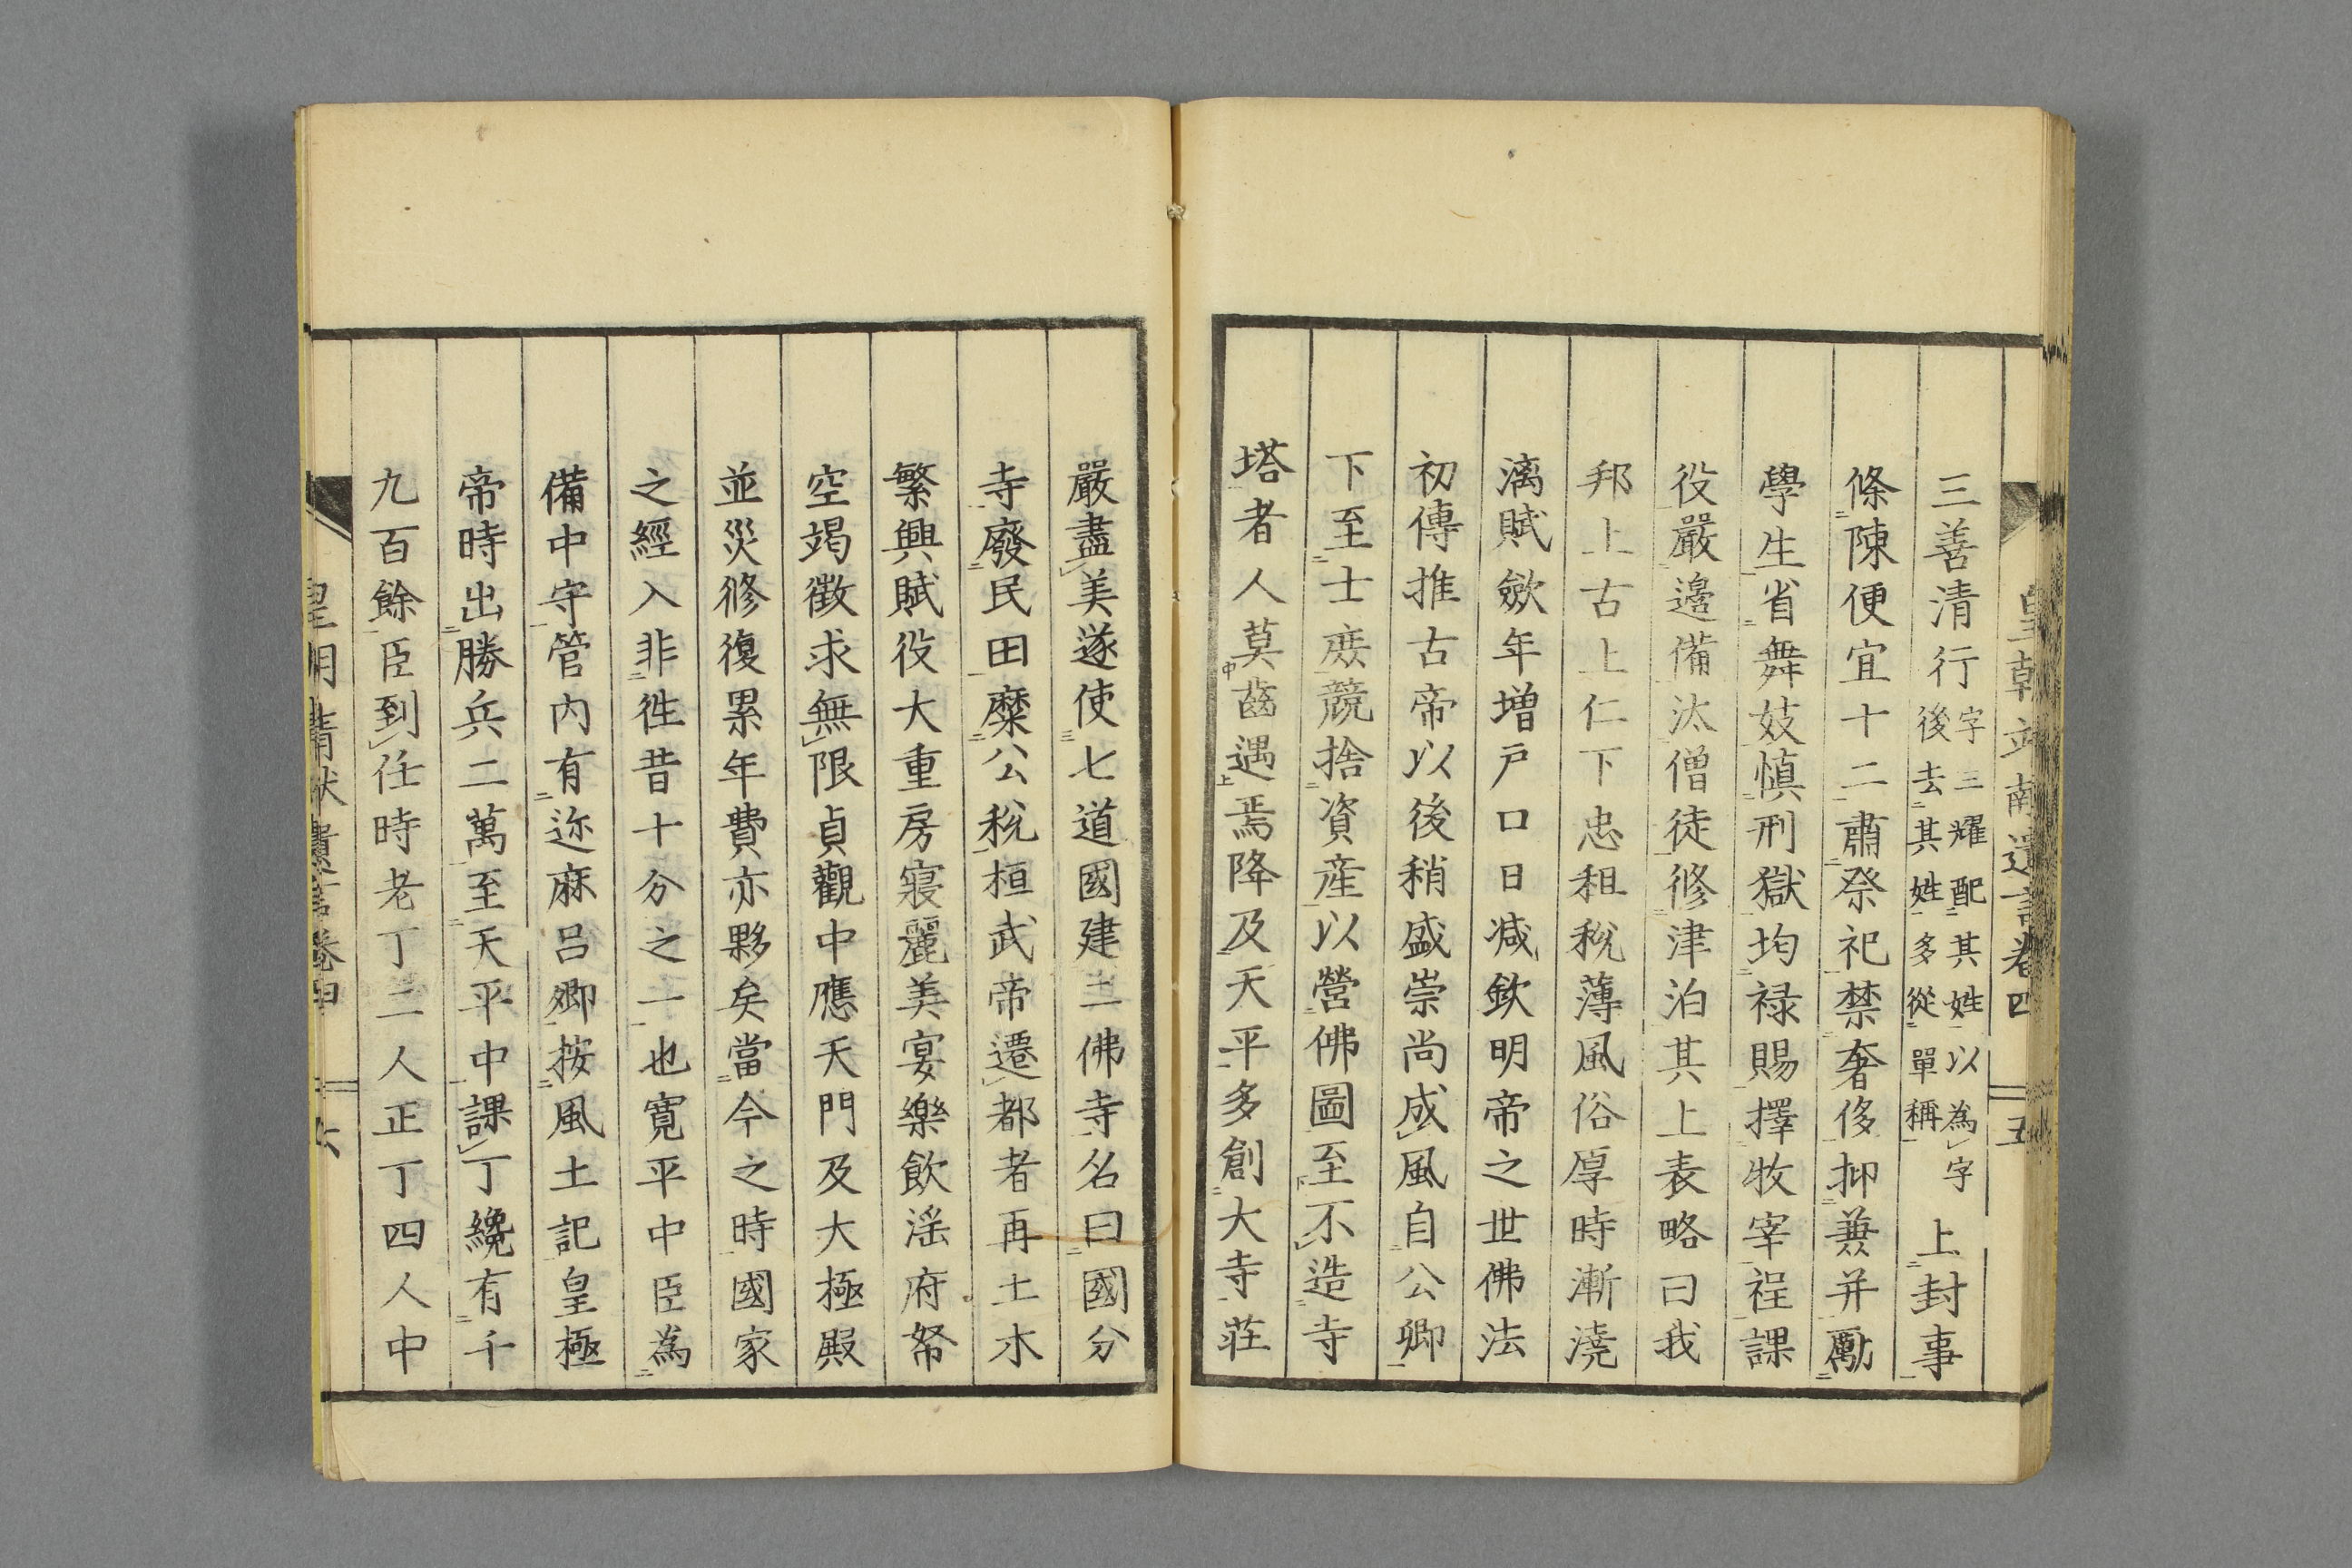 三善清行字三耀配其姓以為字後去其姓多從單稱上封事
條陳便宜十二肅祭祀禁奢侈抑兼并勵
學生省舞妓慎刑獄均祿賜擇牧宰程課
役嚴邊備汰僧徒修津泊其上表略曰我
邦上古上仁下忠租稅薄風俗厚時漸澆
漓賦斂年增戶口日減欽明帝之世佛法
初傳推古帝以後稍盛崇尚成風自公卿
下至士庶競捨資產以營佛圖至不造寺
塔者人莫齒遇焉降及天平多創大寺莊
嚴盡美遂使七道國建二佛寺名曰國分
寺廢民田糜公稅桓武帝遷都者再土木
繁興賦役大重房寢麗美宴樂飲淫府帑
空竭徵求無限貞觀中應天門及大極殿
並災修復累年費亦夥矣當今之時國家
之經入非徃昔十分之一也寬平中臣為
備中守管內有迩麻呂鄉按風土記皇極
帝時出勝兵二萬至天平中課丁纔有千
九百餘臣到任時老丁二人正丁四人中
卷四
五
六